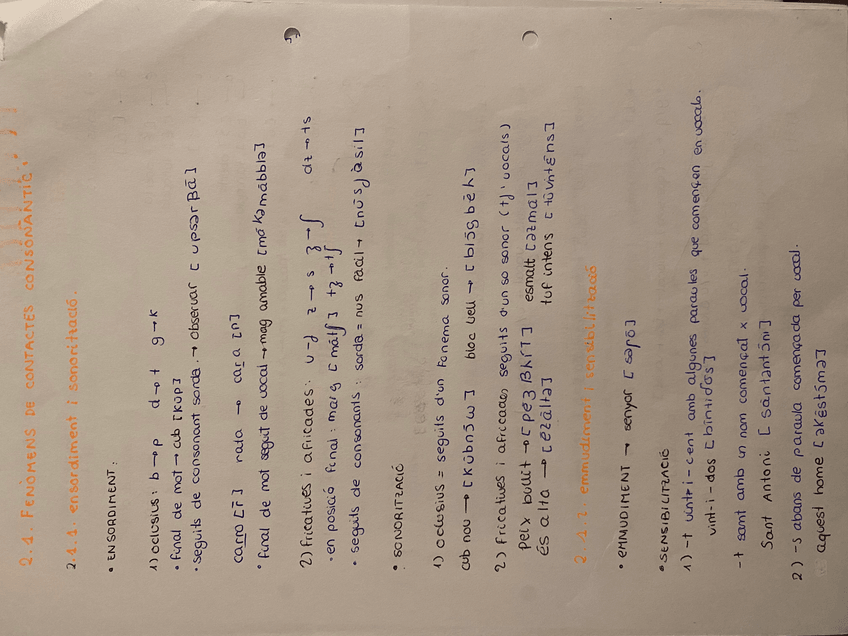 2.1. FENÒMENS DE CONTACTES CONSONANTIC.
2.1.1. ensordiment i sonorització.
• ENSORDIMENT:
1) oclusius: b→p d→t g→k
• final de mot → cub [kup]
• seguits de consonant sorda. → observar [upsərβá]
carro [r̄] rata → cara [ɾ]
• final de mot seguit de vocal → mag amable [mákəmábblə]
2) fricatives i africades: v→f z→s ʒ→ʃ dz→ts
• en posició final: marg [matʃ] tʒ→tʃ
• seguits de consonants: sorda = nus fàcil → [núsfàsil]
• SONORITZACIÓ
1) oclusius = seguits d'un fonema sonor.
cub nou → [kúbnɔ́w] bloc vell → [blɔ́gbéʎ]
2) fricatives i africades seguits d'un so sonor (tʃ' vocals)
peix bullit → [peʒβʎít] esmalt [əzmál]
és alta → [ezálta] tuf intens [túvinténs]
2.1.2. emmudiment i sensibilització
• EMMUDIMENT → senyor [səɲó]
• SENSIBILITZACIÓ
1) -t vint-i-cent amb algunes paraules que comencen en vocals.
vint-i-dos [bintiðós]
-t samt amb un nom començat x vocal.
Sant Antoni [sántantɔ́ni]
2) -s abans de paraula començada per vocal.
aquest home [əkéstɔ́mə]